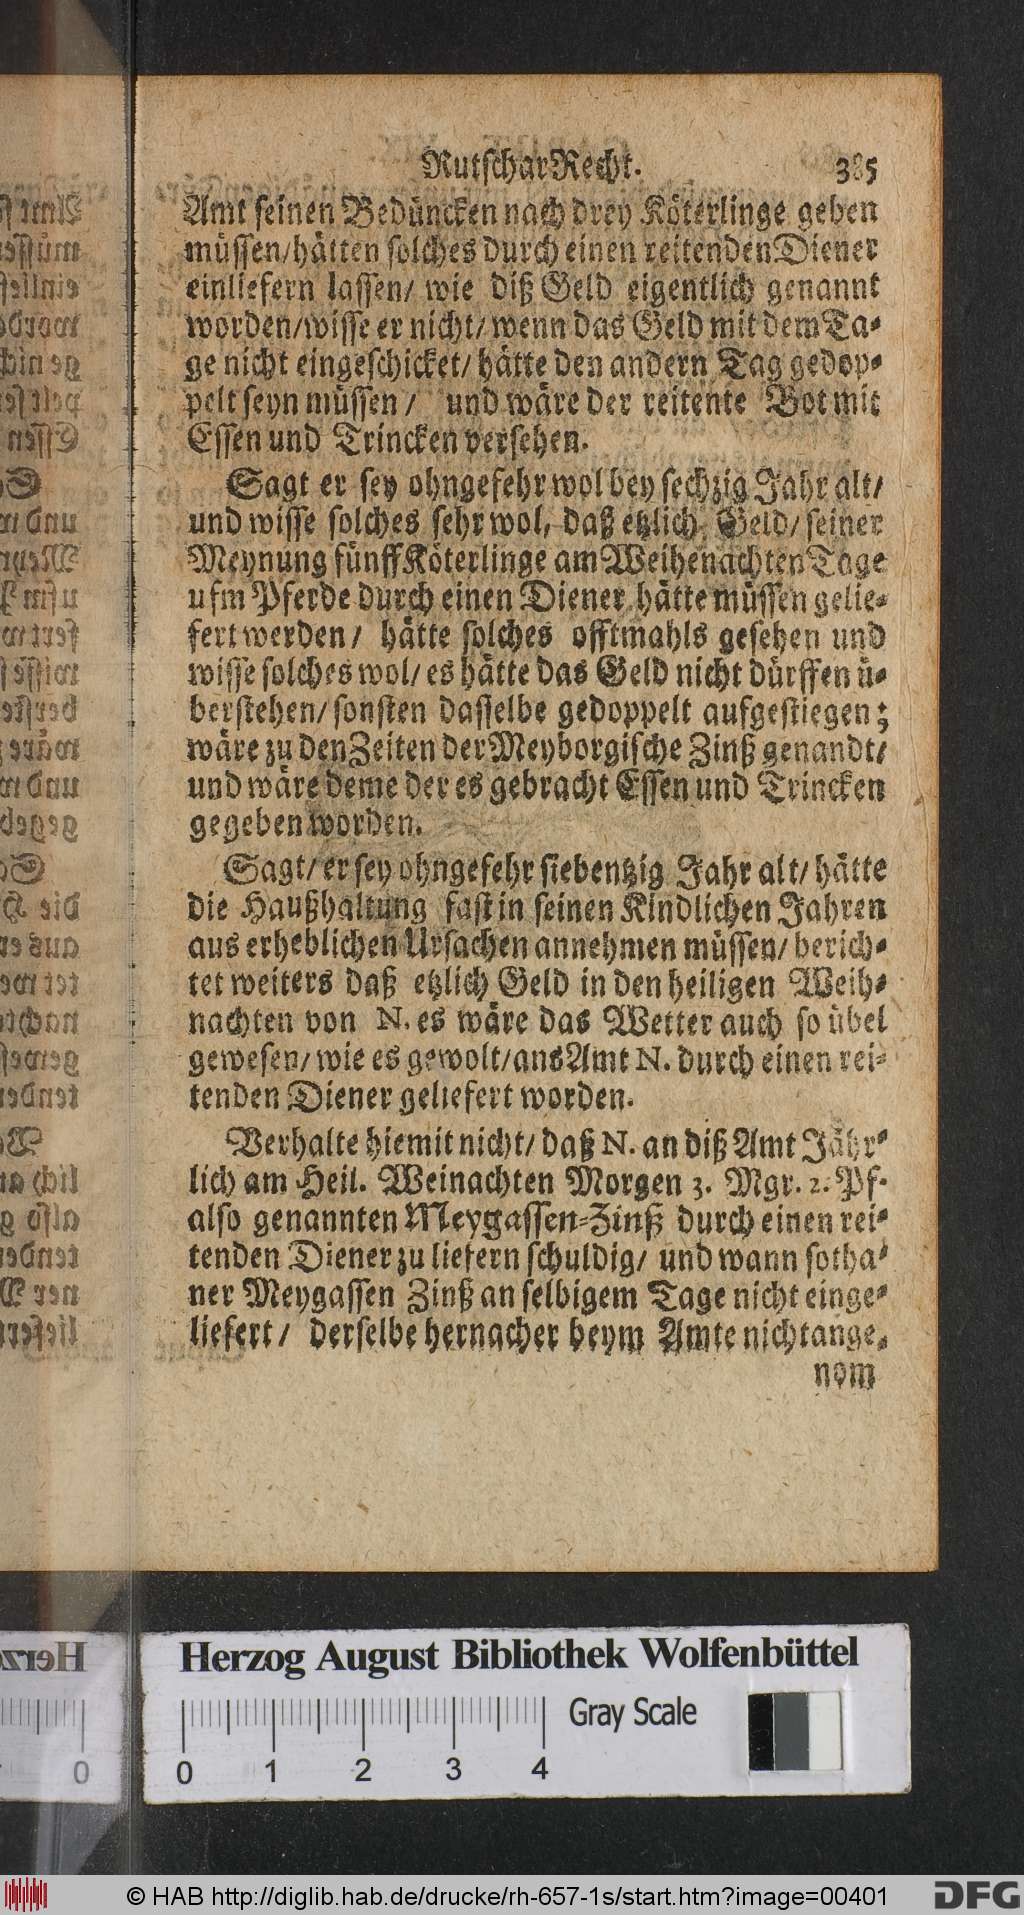 RutscharRecht. 385
Amt seinen Bedüncken nach drey Köterlinge geben
müssen/hätten solches durch einen reitenden Diener
einliefern lassen/ wie diß Geld eigentlich genannt
worden/wisse er nicht/wenn das Geld mit dem Ta-
ge nicht eingeschicket/ hätte den andern Tag gedop-
pelt seyn müssen/ und wäre der reitente Bot mit
Essen und Trincken versehen.
Sagt er sey ohngefehr wol bey sechzig Jahr alt/
und wisse solches sehr wol, daß etzlich Geld/ seiner
Meynung fünff Köterlinge am Weihenachten Tage
ufm Pferde durch einen Diener hätte müssen gelie-
fert werden/ hätte solches offtmahls gesehen und
wisse solches wol/ es hätte das Geld nicht dürffen ü-
berstehen/ sonsten dasselbe gedoppelt aufgestiegen;
wäre zu den Zeiten der Meyborgische Zinß genandt/
und wäre deme der es gebracht Essen und Trincken
gegeben worden.
Sagt/ er sey ohngefehr siebentzig Jahr alt/ hätte
die Haußhaltung fast in seinen Kindlichen Jahren
aus erheblichen Ursachen annehmen müssen/ berich-
tet weiters daß etzlich Geld in den heiligen Weih-
nachten von N. es wäre das Wetter auch so übel
gewesen/ wie es gewolt/ ans Amt N. durch einen rei-
tenden Diener geliefert worden.
Verhalte hiemit nicht/ daß N. an diß Amt Jähr-
lich am Heil. Weinachten Morgen 3. Mgr. 2. Pf.
also genannten Meygassen-Zinß durch einen rei-
tenden Diener zu liefern schuldig/ und wann sotha-
ner Meygassen Zinß an selbigem Tage nicht einge-
liefert/ derselbe hernacher beym Amte nicht ange-
nom
Herzog August Bibliothek Wolfenbüttel
Gray Scale
0 1 2 3 4
© HAB http://diglib.hab.de/drucke/rh-657-1s/start.htm?image=00401
DFG